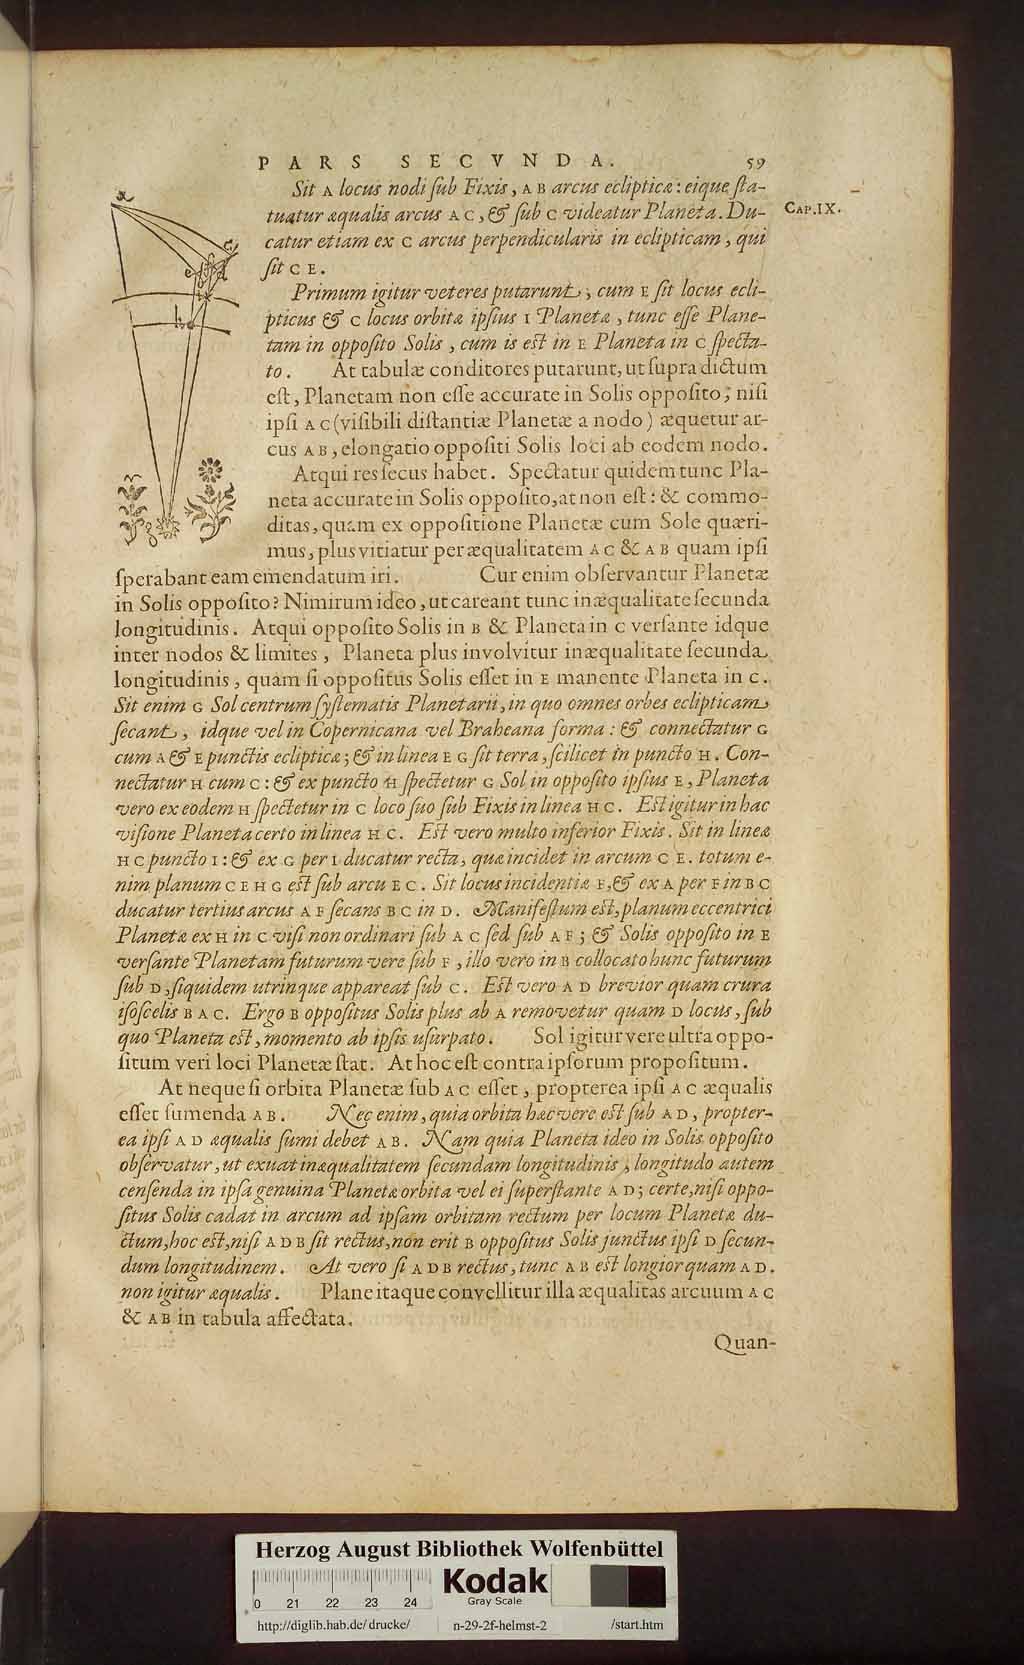 PARS SECVNDA. 59
CAP.IX.
Sit A locus nodi ſub Fixis, AB arcus eclipticæ: eique ſta-
tuatur æqualis arcus AC, & ſub C videatur Planeta. Du-
catur etiam ex C arcus perpendicularis in eclipticam, qui
ſit CE.
Primum igitur veteres putarunt; cum E ſit locus ecli-
pticus & C locus orbitæ ipſius I Planetæ, tunc eſſe Plane-
tam in oppoſito Solis, cum is eſt in E Planeta in C ſpecta-
to. At tabulæ conditores putarunt, ut ſupra dictum
eſt, Planetam non eſſe accurate in Solis oppoſito, niſi
ipſi AC (viſibili diſtantiæ Planetæ a nodo) æquetur ar-
cus AB, elongatio oppoſiti Solis loci ab eodem nodo.
Atqui res ſecus habet. Spectatur quidem tunc Pla-
neta accurate in Solis oppoſito, at non eſt: & commo-
ditas, quam ex oppoſitione Planetæ cum Sole quæri-
mus, plus vitiatur per æqualitatem AC & AB quam ipſi
ſperabant eam emendatum iri. Cur enim obſervantur Planetæ
in Solis oppoſito? Nimirum ideo, ut careant tunc inæqualitate ſecunda
longitudinis. Atqui oppoſito Solis in B & Planeta in C verſante idque
inter nodos & limites, Planeta plus involvitur inæqualitate ſecunda
longitudinis, quam ſi oppoſitus Solis eſſet in E manente Planeta in C.
Sit enim G Sol centrum ſyſtematis Planetarii, in quo omnes orbes eclipticam
ſecant, idque vel in Copernicana vel Braheana forma: & connectatur G
cum A & E punctis eclipticæ; & in linea EG ſit terra, ſcilicet in puncto H. Con-
nectatur H cum C: & ex puncto H ſpectetur G Sol in oppoſito ipſius E, Planeta
vero ex eodem H ſpectetur in C loco ſuo ſub Fixis in linea HC. Eſt igitur in hac
viſione Planeta certo in linea HC. Eſt vero multo inferior Fixis. Sit in lineæ
HC puncto I: & ex G per I ducatur recta, quæ incidet in arcum CE. totum e-
nim planum CEHG eſt ſub arcu EC. Sit locus incidentiæ F, & ex A per F in BC
ducatur tertius arcus AF ſecans BC in D. Manifeſtum eſt, planum eccentrici
Planetæ ex H in C viſi non ordinari ſub AC ſed ſub AF; & Solis oppoſito in E
verſante Planetam futurum vere ſub F, illo vero in B collocato hunc futurum
ſub D, ſiquidem utrinque appareat ſub C. Eſt vero AD brevior quam crura
iſoſcelis BAC. Ergo B oppoſitus Solis plus ab A removetur quam D locus, ſub
quo Planeta eſt, momento ab ipſis uſurpato. Sol igitur vere ultra oppo-
ſitum veri loci Planetæ ſtat. At hoc eſt contra ipſorum propoſitum.
At neque ſi orbita Planetæ ſub AC eſſet, propterea ipſi AC æqualis
eſſet ſumenda AB. Nec enim, quia orbita hæc vere eſt ſub AD, propter-
ea ipſi AD æqualis ſumi debet AB. Nam quia Planeta ideo in Solis oppoſito
obſervatur, ut exuat inæqualitatem ſecundam longitudinis, longitudo autem
cenſenda in ipſa genuina Planetæ orbita vel ei ſuperſtante AD; certe, niſi oppo-
ſitus Solis cadat in arcum ad ipſam orbitam rectum per locum Planetæ du-
ctum, hoc eſt, niſi ADB ſit rectus, non erit B oppoſitus Solis junctus ipſi D ſecun-
dum longitudinem. At vero ſi ADB rectus, tunc AB eſt longior quam AD.
non igitur æqualis. Plane itaque convellitur illa æqualitas arcuum AC
& AB in tabula affectata.
Quan-
Herzog August Bibliothek Wolfenbüttel
0 21 22 23 24
Kodak
Gray Scale
http://diglib.hab.de/drucke/ n-29-2f-helmst-2 /start.htm